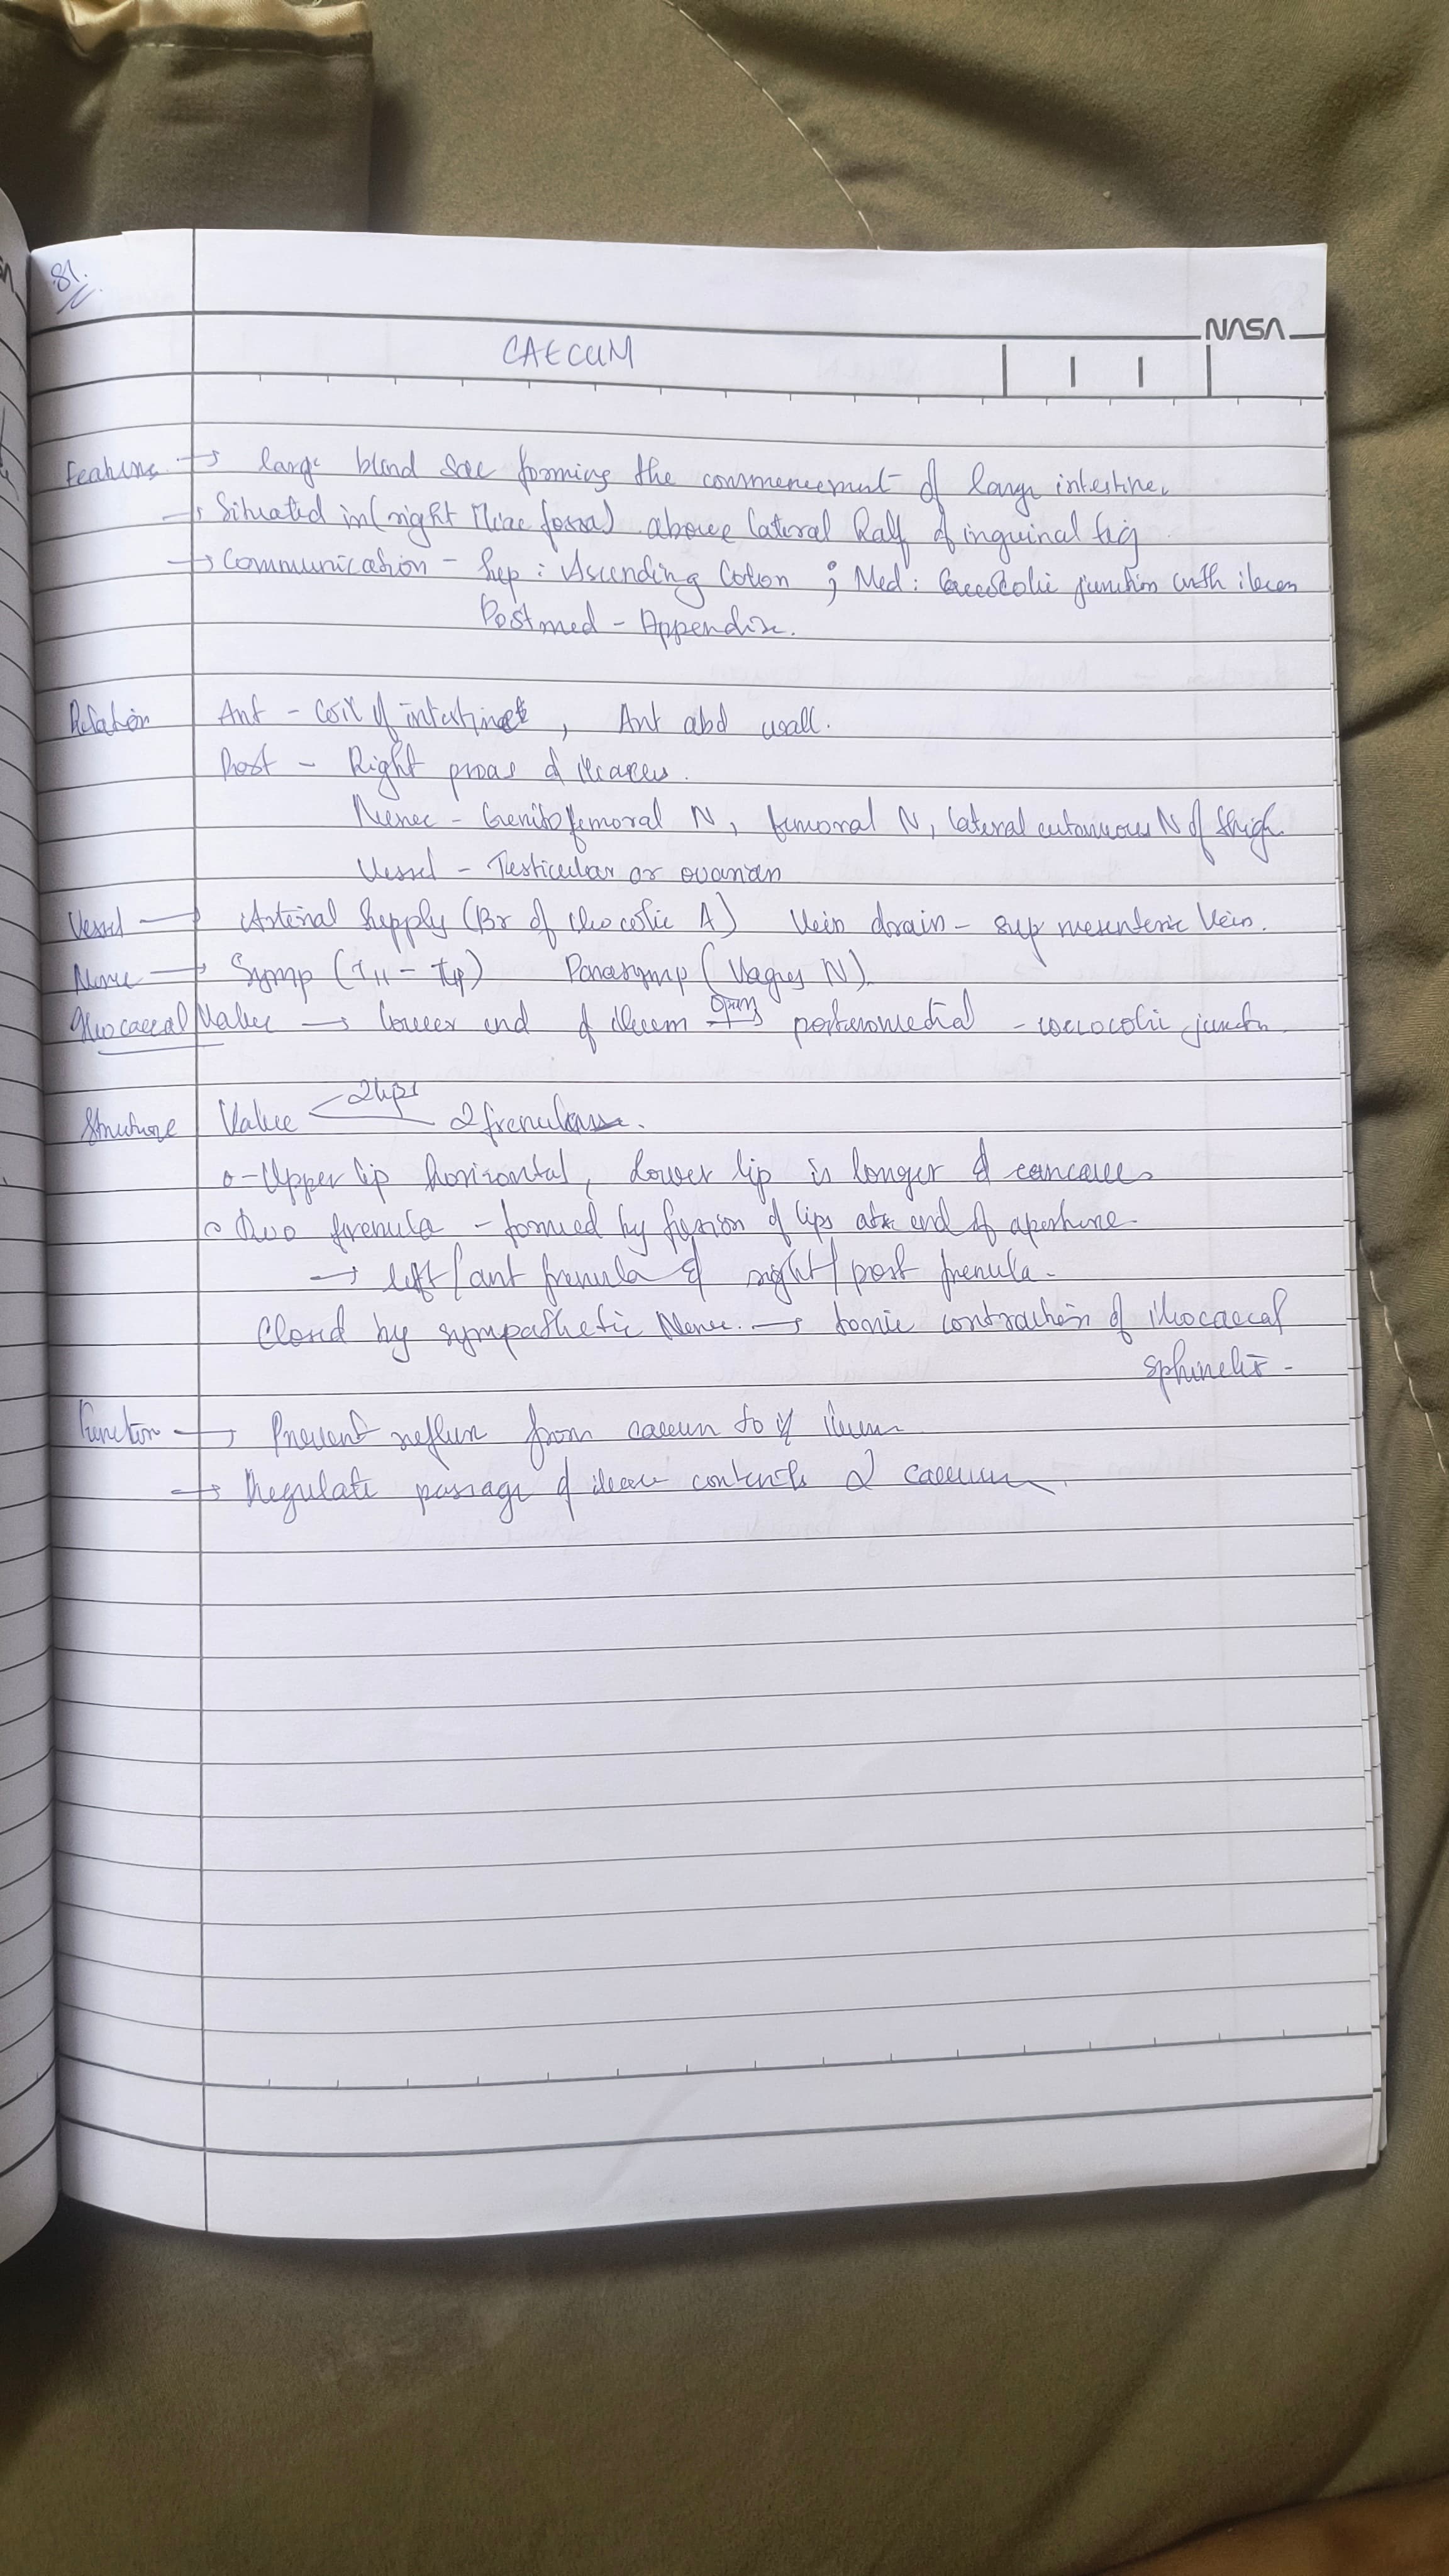 81.
NASA
CAECUM
Features → large blind sac forming the commencement of large intestine.
→ Situated in (right Iliac fossa) above lateral half of inguinal lig
→ Communication - Sup : Ascending Colon ; Med : Caecocolic junction with ileum
Postmed - Appendix.
Relation Ant - Coil of intestine, Ant abd wall.
Post - Right psoas & iliacus.
Nerve - Genitofemoral N, femoral N, lateral cutaneous N of thigh
Vessel - Testicular or ovarian
Vessel → Arterial Supply (Br of Ileocolic A) Vein drain - sup mesenteric Vein.
Nerve → Symp (T11 - ) Parasymp (Vagus N)
Ileocaecal Valve → lower end of ileum opens → posteromedial - caecocolic junctn
Structure Valve < 2 lips
2 frenulas.
o - Upper lip horizontal, Lower lip is longer & concave
o Two frenula - formed by fusion of lips at end of aperture.
→ left/ant frenula & right/post frenula -
Closed by sympathetic Nerve. → tonic contraction of ileocaecal
sphincter -
Function → Prevent reflux from caecum to ileum
→ Regulate passage of contents 2 caecum